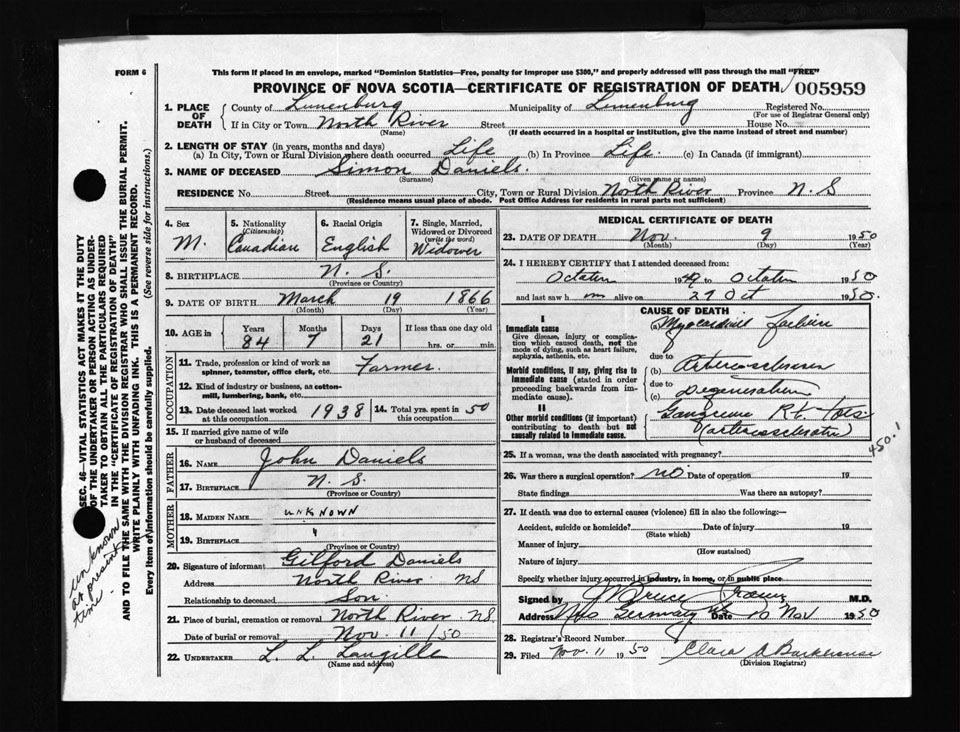 FORM 6
This form if placed in an envelope, marked "Dominion Statistics—Free, penalty for improper use $300," and properly addressed will pass through the mail "FREE"
PROVINCE OF NOVA SCOTIA—CERTIFICATE OF REGISTRATION OF DEATH
005959
1. PLACE OF DEATH
County of Lunenburg Municipality of Lunenburg Registered No.
(For use of Registrar General only)
If in City or Town North River Street House No.
(Name) (If death occurred in a hospital or institution, give the name instead of street and number)
2. LENGTH OF STAY (in years, months and days)
(a) In City, Town or Rural Division where death occurred Life (b) In Province Life. (c) In Canada (if immigrant)
3. NAME OF DECEASED Simon Daniels.
(Surname) (Given name or names)
RESIDENCE No. Street City, Town or Rural Division North River Province N.S
(Residence means usual place of abode. Post Office Address for residents in rural parts not sufficient)
4. Sex
M.
5. Nationality
(Citizenship)
Canadian
6. Racial Origin
English
7. Single, Married,
Widowed or Divorced
(write the word)
Widower
8. BIRTHPLACE N. S.
(Province or Country)
9. DATE OF BIRTH March 19 1866
(Month) (Day) (Year)
10. AGE in
Years Months Days If less than one day old
84 7 21 hrs. or min.
OCCUPATION
11. Trade, profession or kind of work as
spinner, teamster, office clerk, etc. Farmer.
12. Kind of industry or business, as cotton-
mill, lumbering, bank, etc.
13. Date deceased last worked
at this occupation 1938
14. Total yrs. spent in
this occupation 50
15. If married give name of wife
or husband of deceased
FATHER
16. NAME John Daniels
17. BIRTHPLACE N. S.
(Province or Country)
MOTHER
18. MAIDEN NAME UNKNOWN
19. BIRTHPLACE "
(Province or Country)
20. Signature of informant Gilford Daniels
Address North River NS
Relationship to deceased Son.
21. Place of burial, cremation or removal North River NS.
Date of burial or removal Nov. 11/50
22. UNDERTAKER L. L. Langille
(Name and address)
MEDICAL CERTIFICATE OF DEATH
23. DATE OF DEATH Nov. 9 1950
(Month) (Day) (Year)
24. I HEREBY CERTIFY that I attended deceased from:
October 1949 to October 1950
and last saw h im alive on 29 Oct 1950.
CAUSE OF DEATH
I
Immediate cause
Give disease, injury or complica-
tion which caused death, not the
mode of dying, such as heart failure,
asphyxia, asthenia, etc.
(a) Myocardial Failure
due to
Morbid conditions, if any, giving rise to
immediate cause (stated in order
proceeding backwards from im-
mediate cause).
(b) Arteriosclerosis
due to
(c) Degeneration
II
Other morbid conditions (if important)
contributing to death but not
causally related to immediate cause.
Gangrene Rt. Toes
(arteriosclerotic)
450.1
25. If a woman, was the death associated with pregnancy?
26. Was there a surgical operation? no Date of operation 19
State findings Was there an autopsy?
27. If death was due to external causes (violence) fill in also the following:—
Accident, suicide or homicide? Date of injury 19
(State which)
Manner of injury
(How sustained)
Nature of injury
Specify whether injury occurred in industry, in home, or in public place
Signed by Bruce M.D.
Address Date 10 Nov 1950
28. Registrar's Record Number
29. Filed Nov. 11 1950 Clara A Barkhouse
(Division Registrar)
SEC. 46—VITAL STATISTICS ACT MAKES IT THE DUTY
OF THE UNDERTAKER OR PERSON ACTING AS UNDER-
TAKER TO OBTAIN ALL THE PARTICULARS REQUIRED
IN THE "CERTIFICATE OF REGISTRATION OF DEATH"
AND TO FILE THE SAME WITH THE DIVISION REGISTRAR WHO SHALL ISSUE THE BURIAL PERMIT.
WRITE PLAINLY WITH UNFADING INK. THIS IS A PERMANENT RECORD.
Every item of information should be carefully supplied. (See reverse side for instructions.)
unknown
at present
time.